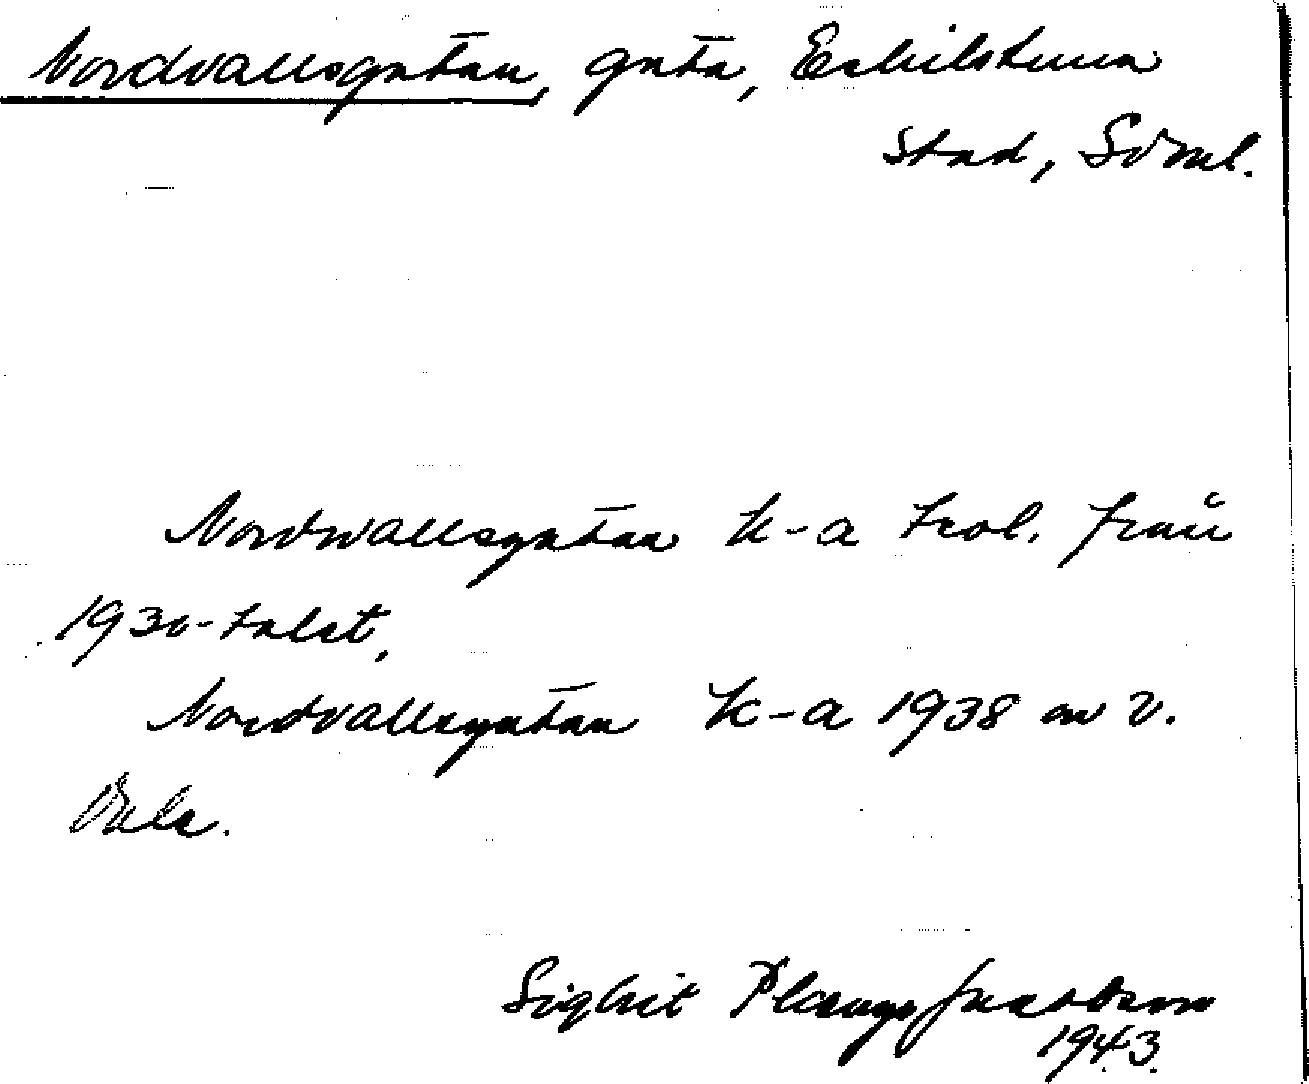 Nordvallsgatan, gata, Eskilstuna
stad, Sörml.
Nordwallsgatan k-a trol. från
1930-talet,
Nordvallsgatan k-a 1938 av V.
Dala.
Sigbrit Plænge Jacobson
1943.